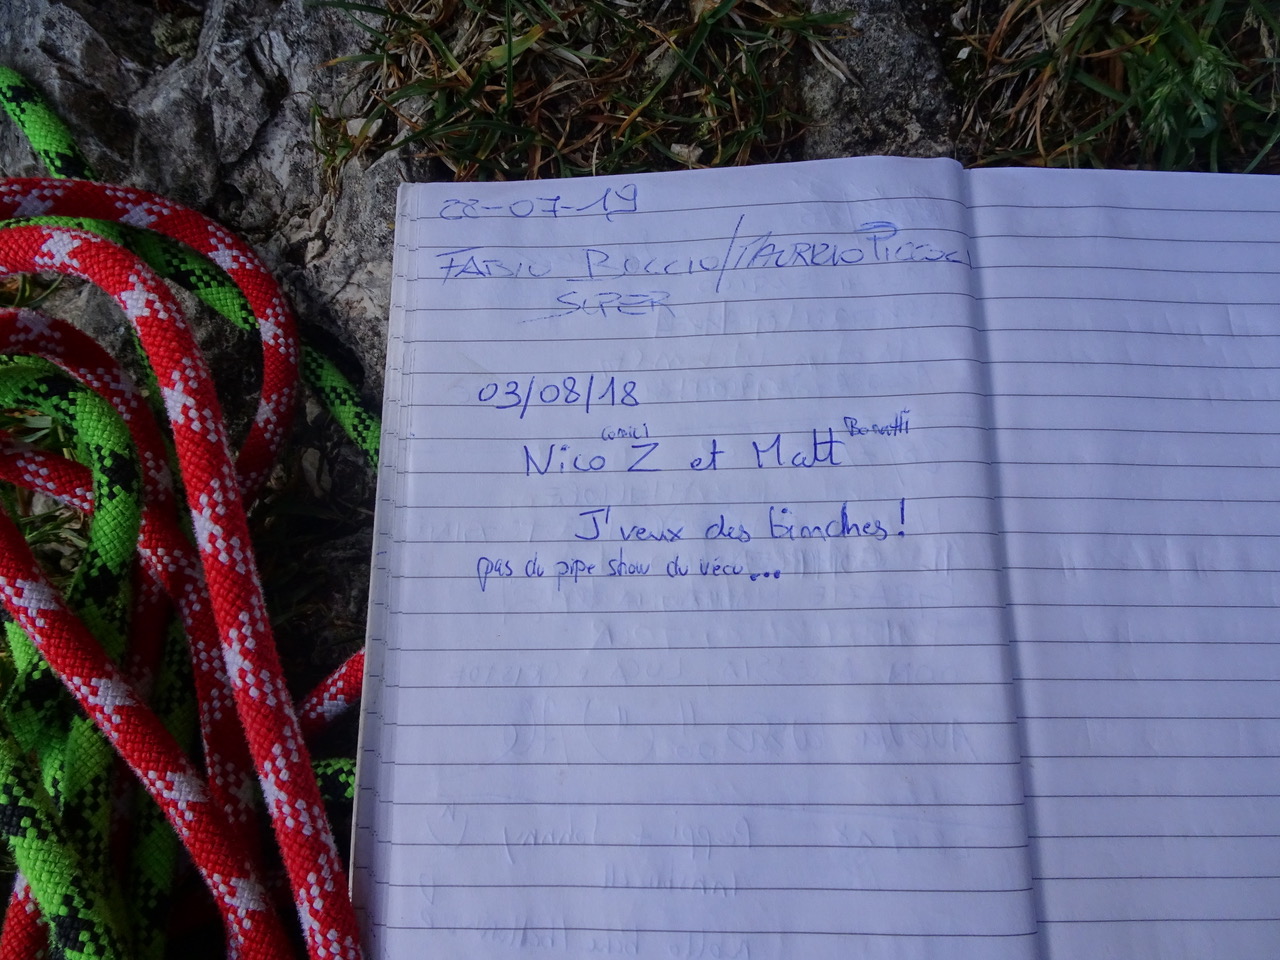 22-07-19
FABIO BOCCIO/MAURIZIO
SUPER
03/08/18
Comici Bonatti
Nico Z et Matt
J'veux des binches!
pas du pipe show du vécu...